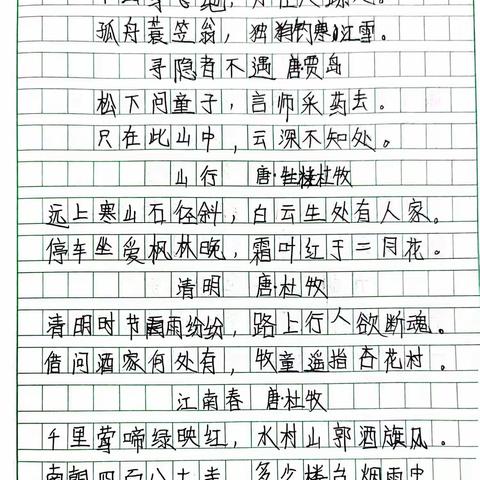 孤舟蓑笠翁，独钓寒江雪。
寻隐者不遇 唐·贾岛
松下问童子，言师采药去。
只在此山中，云深不知处。
山行 唐·杜牧
远上寒山石径斜，白云生处有人家。
停车坐爱枫林晚，霜叶红于二月花。
清明 唐·杜牧
清明时节雨纷纷，路上行人欲断魂。
借问酒家何处有，牧童遥指杏花村。
江南春 唐·杜牧
千里莺啼绿映红，水村山郭酒旗风。
南朝四百八十寺，多少楼台烟雨中